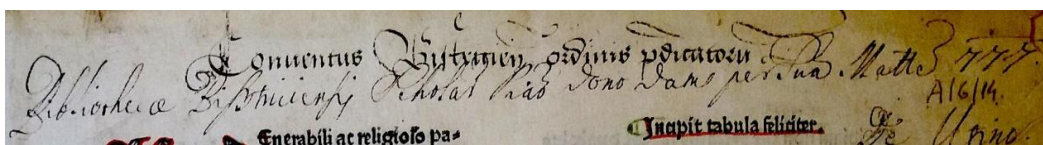 Conuentus Bistricien ordinis pdicatorum
Bibliothecae Bistriciensis Scholar Piar dono datus per Suam Matte 777.
A/6/14.
Enerabili ac religioso pa-
Incipit tabula feliciter.